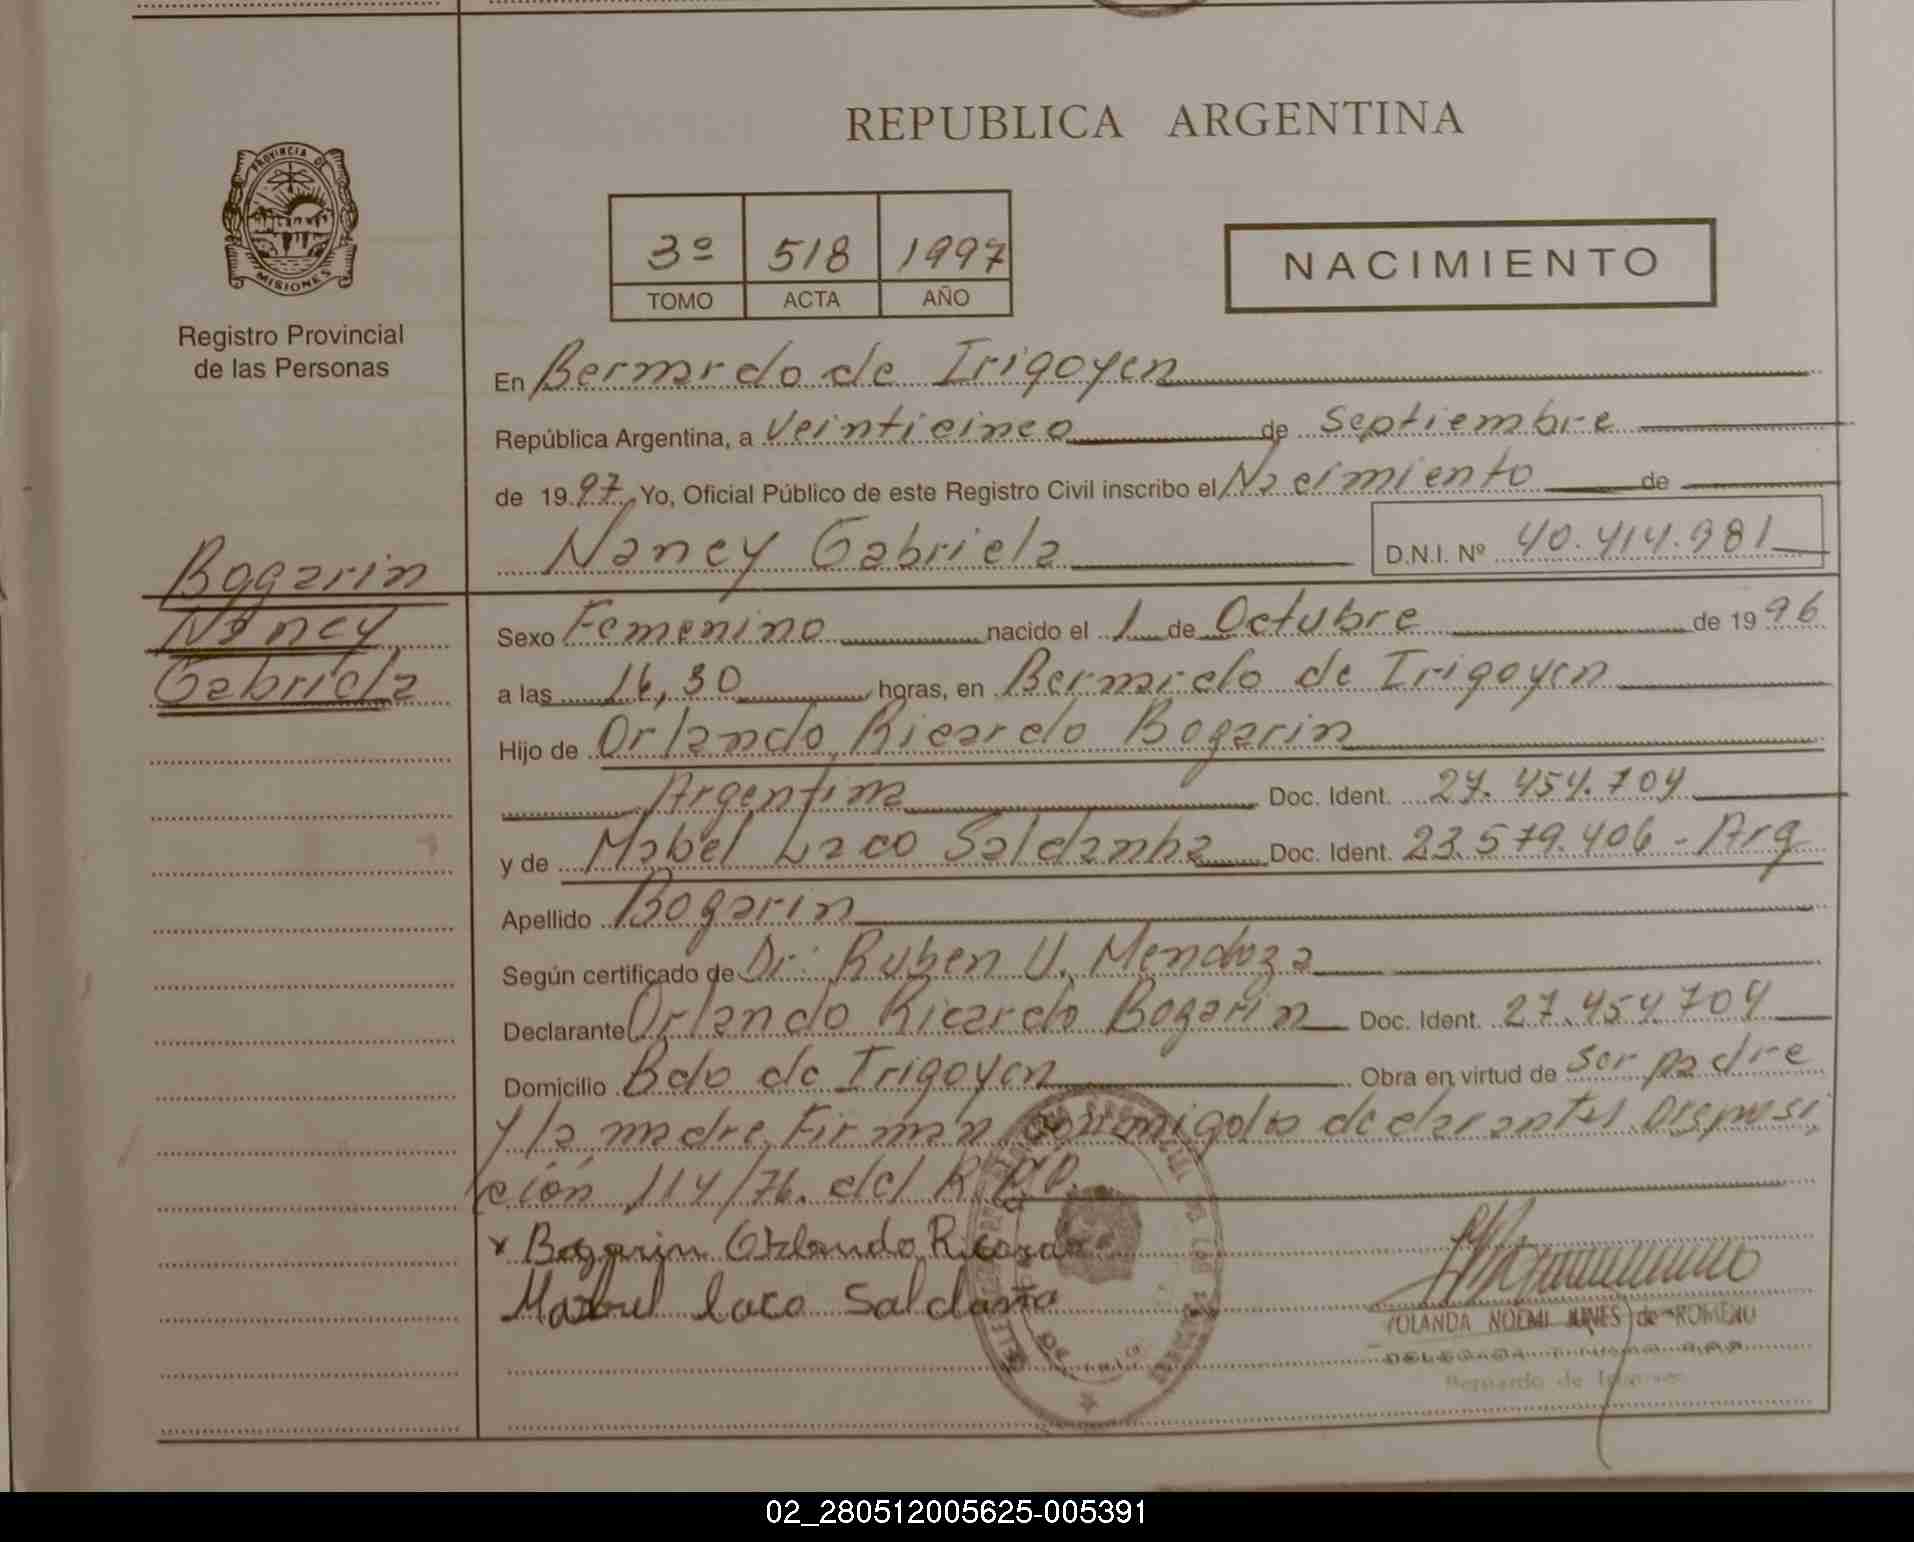 PROVINCIA DE
MISIONES
Registro Provincial
de las Personas
REPUBLICA ARGENTINA
3º 518 1997
TOMO ACTA AÑO
NACIMIENTO
En Bernardo de Irigoyen
República Argentina, a Veinticinco de Septiembre
de 1997 Yo, Oficial Público de este Registro Civil inscribo el Nacimiento de
Nancy Gabriela D.N.I. Nº 40.414.981
Bogarin
Nancy
Gabriela
Sexo Femenino nacido el 1 de Octubre de 1996
a las 16,30 horas, en Bernardo de Irigoyen
Hijo de Orlando Ricardo Bogarin
Argentina Doc. Ident. 27.454.704
y de Mabel Laco Saldanha Doc. Ident. 23.579.406 - Arg
Apellido Bogarin
Según certificado de Dr: Ruben U. Mendoza
Declarante Orlando Ricardo Bogarin Doc. Ident. 27.454.704
Domicilio Bdo de Irigoyen Obra en virtud de ser padre
y la madre Firman conmigo los declarantes Disposi
ción 114/76. del R.P.P.
x Bogarin Orlando Ricardo
laco Saldanha
YOLANDA NOEMI de ROMERO
Bernardo de Irigoyen
02_280512005625-005391